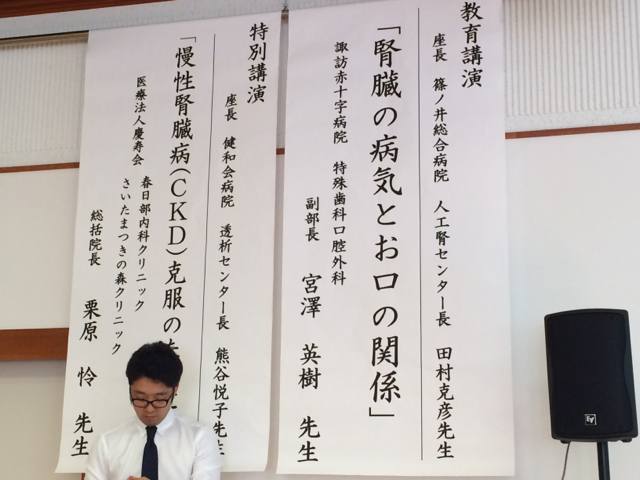 教育講演
座長 篠ノ井総合病院 人工腎センター長 田村克彦先生
「腎臓の病気とお口の関係」
諏訪赤十字病院 特殊歯科口腔外科
副部長 宮澤 英樹 先生
特別講演
座長 健和会病院 透析センター長 熊谷悦子先生
「慢性腎臓病(CKD)克服の
医療法人慶寿会
春日部内科クリニック
さいたまつきの森クリニック
総括院長 栗原 怜 先生
EV